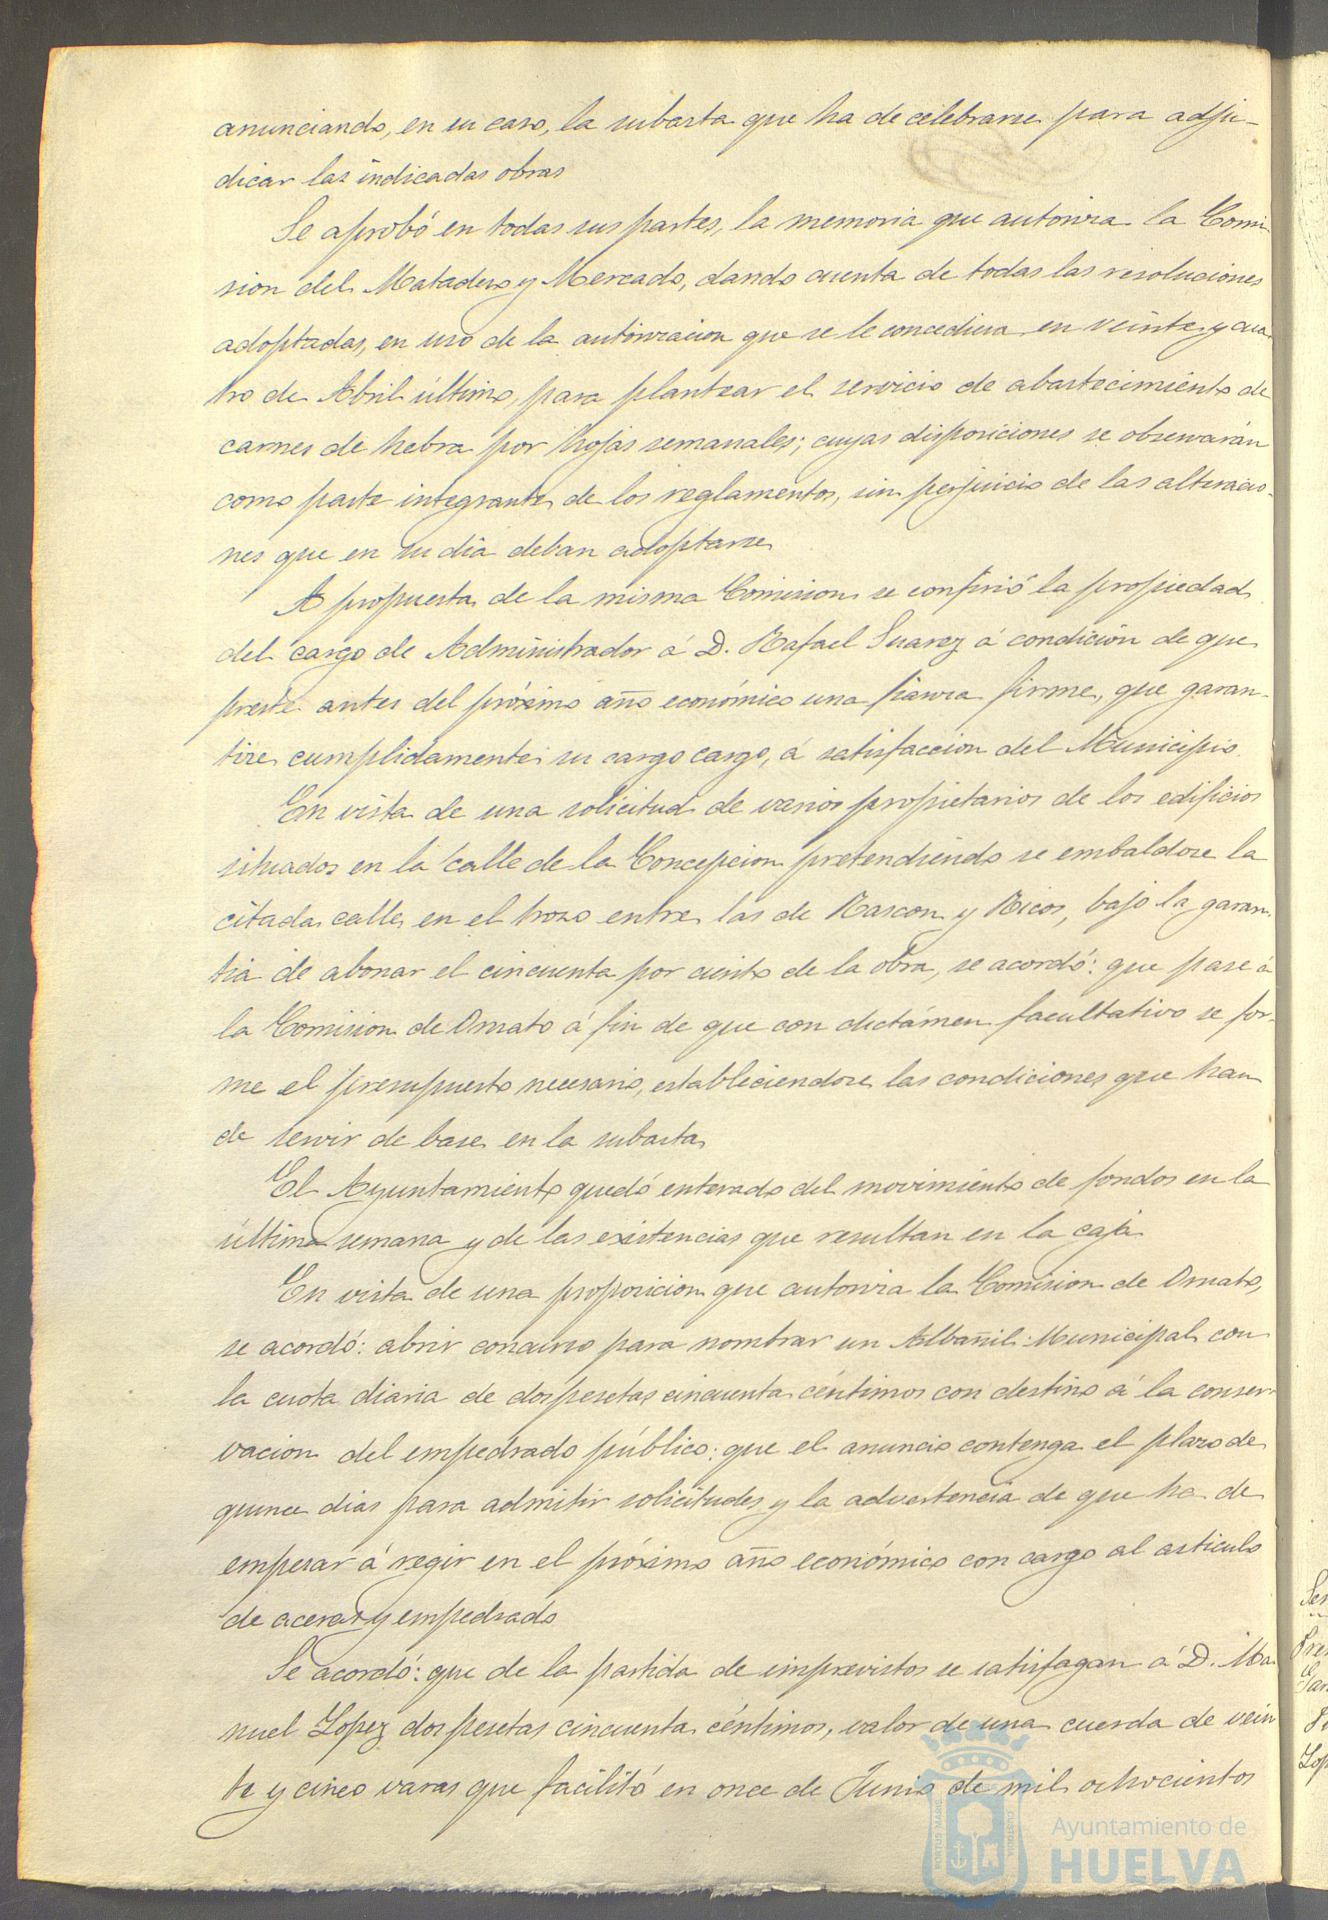 anunciando, en su caso, la subasta que ha de celebrarse para adju-
dicar las indicadas obras
Se aprobó en todas sus partes, la memoria que autoriza la Comi
sion del Matadero y Mercado, dando cuenta de todas las resoluciones
adoptadas, en uso de la autorizacion que se le concediera en veinte y cua
tro de Abril último, para plantear el servicio de abastecimiento de
carnes de hebra por hojas semanales; cuyas disposiciones se observarán
como parte integrante de los reglamentos, sin perjuicio de las alteracio-
nes que en su dia deban adoptarse
A propuesta de la misma Comision se confirió la propiedad
del cargo de Administrador á D. Rafael Suarez á condición de que
preste antes del próximo año económico una fianza firme, que garan-
tize cumplidamente su cargo cargo, á satisfaccion del Municipio.
En vista de una solicitud de varios propietarios de los edificios
situados en la calle de la Concepcion pretendiendo se embaldose la
citada calle en el trozo entre las de Rascon y Ricos, bajo la garan
tia de abonar el cincuenta por ciento de la obra, se acordó: que pase á
la Comision de Ornato á fin de que con dictámen facultativo se for-
me el presupuesto necesario, estableciendose las condiciones que han
de servir de base en la subasta
El Ayuntamiento quedó enterado del movimiento de fondos en la
última semana y de las existencias que resultan en la caja
En vista de una proposicion que autoriza la Comision de Ornato,
se acordó: abrir concurso para nombrar un Albañil Municipal con
la cuota diaria de dos pesetas cincuenta céntimos con destino á la conser-
vacion del empedrado público: que el anuncio contenga el plazo de
quince dias para admitir solicitudes y la advertencia de que ha de
empezar á regir en el próximo año económico con cargo al articulo
de aceras y empedrado
Se acordó: que de la partida de imprevistos se satisfagan á D. Ma
nuel Lopez dos pesetas cincuenta céntimos, valor de una cuerda de vein
te y cinco varas que facilitó en once de Junio de mil ochocientos
Ayuntamiento de
HUELVA